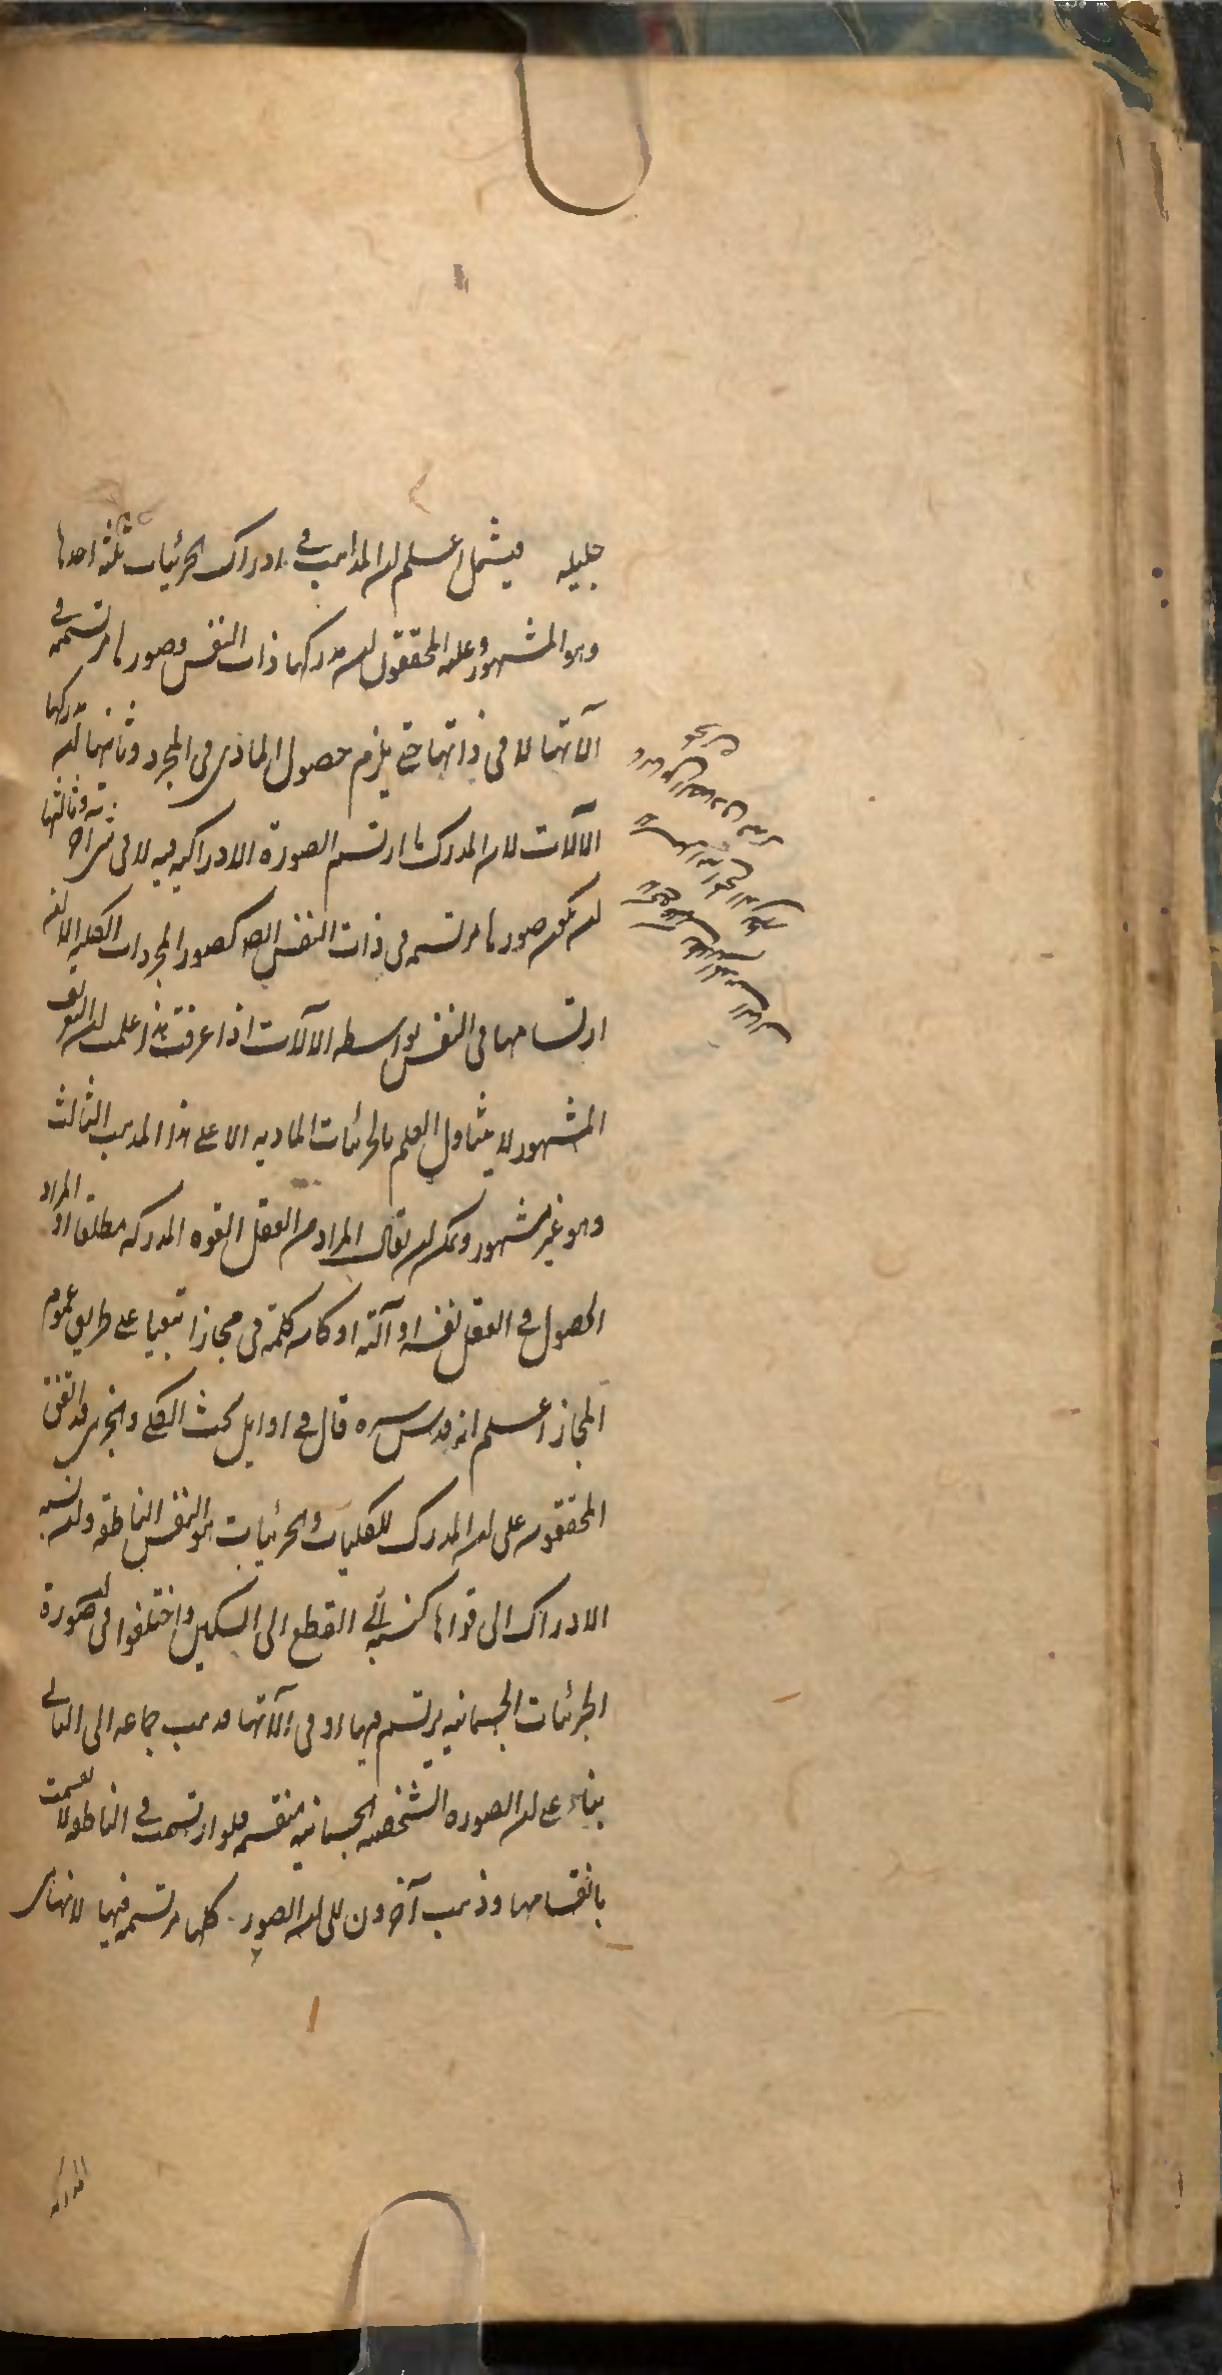 جليله فيشمل اعلم ان المذاهب في ادراك الجزئيات ثلثة احدها
وهو المشهور وعليه المحققون ان مدركها ذات النفس وصورها مرتسمة في
آلاتها لا في ذاتها حتى يلزم حصول المادى في المجرد وثانيها ان مدركها
الآلات لان المدرك ما ارتسم الصورة الادراكيه فيه لا في شئ آخر وثالثها
ان يكون صورها مرتسمه في ذات النفس ايضا كصور المجردات الكليه الا ان
ارتسامها في النفس بواسطه الآلات اذا عرفت هذا علمت ان التعريف
المشهور لا يتناول العلم بالجزئيات الماديه الا على هذا المذهب الثالث
وهو غير مشهور ويمكن ان يقال المراد من العقل القوه المدركه مطلقا او المراد
الحصول في العقل نفسه او آلته او كان كلمة في مجازا تبعيا على طريق عموم
المجاز اعلم انه قدس سره قال في اوايل بحث الكلى والجزى قد اتفق
المحققون على ان المدرك للكليات والجزئيات هو النفس الناطقه وان نسبة
الادراك الى قواها كنسبة القطع الى السكين واختلفوا في ان صورة
الجزئيات الجسمانيه يرتسم فيها او في آلاتها فذهب جماعه الى الثانى
بناء على ان الصوره الشخصيه الجسمانيه منقسمه فلو ارتسمت في الناطقه لانقسمت
بانقسامها وذهب آخرون الى ان الصور كلها مرتسمه فيها لانها